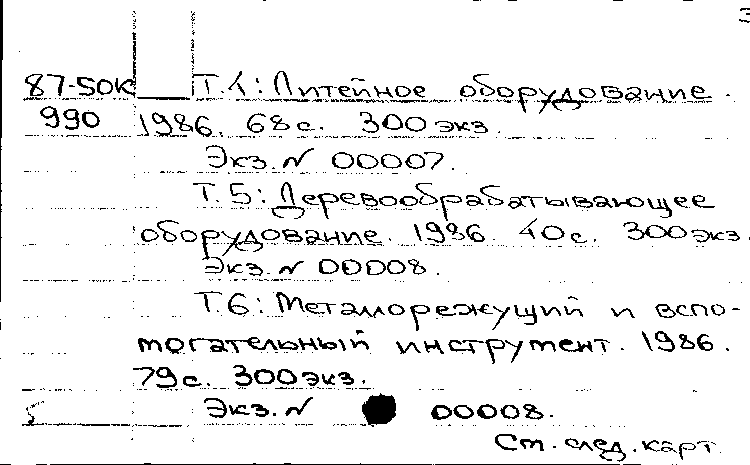 З
87-50к Т.4: Литейное оборудование.
990 1986. 68с. 300экз.
Экз. N 00007.
Т.5: Деревообрабатывающее
оборудование. 1986. 40с. 300экз.
Экз. N 00008.
Т.6: Металлорежущий и вспо-
могательный инструмент. 1986.
79с. 300экз.
5 Экз. N 00008.
См. след. карт.